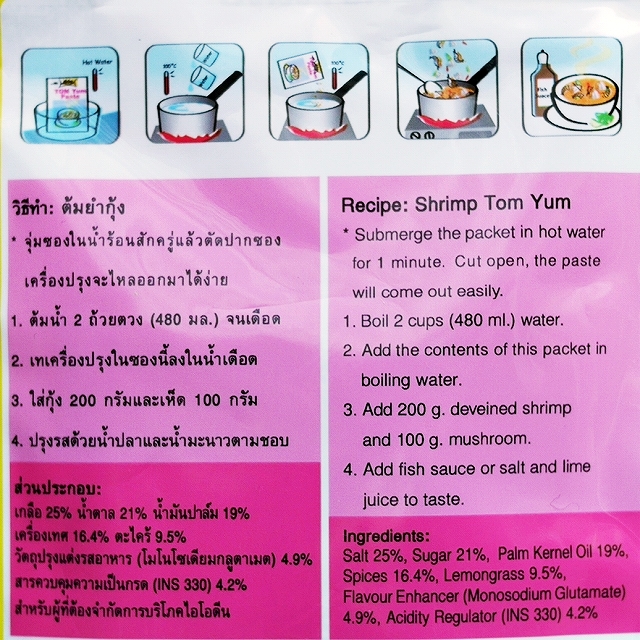 Hot Water
TOM Yum
Paste
100°C
100°C
Fish
Sauce
วิธีทำ: ต้มยำกุ้ง
* จุ่มซองในน้ำร้อนสักครู่แล้วตัดปากซอง
เครื่องปรุงจะไหลออกมาได้ง่าย
1. ต้มน้ำ 2 ถ้วยตวง (480 มล.) จนเดือด
2. เทเครื่องปรุงในซองนี้ลงในน้ำเดือด
3. ใส่กุ้ง 200 กรัมและเห็ด 100 กรัม
4. ปรุงรสด้วยน้ำปลาและน้ำมะนาวตามชอบ
ส่วนประกอบ:
เกลือ 25% น้ำตาล 21% น้ำมันปาล์ม 19%
เครื่องเทศ 16.4% ตะไคร้ 9.5%
วัตถุปรุงแต่งรสอาหาร (โมโนโซเดียมกลูตาเมต) 4.9%
สารควบคุมความเป็นกรด (INS 330) 4.2%
สำหรับผู้ที่ต้องจำกัดการบริโภคไอโอดีน
Recipe: Shrimp Tom Yum
* Submerge the packet in hot water
for 1 minute. Cut open, the paste
will come out easily.
1. Boil 2 cups (480 ml.) water.
2. Add the contents of this packet in
boiling water.
3. Add 200 g. deveined shrimp
and 100 g. mushroom.
4. Add fish sauce or salt and lime
juice to taste.
Ingredients:
Salt 25%, Sugar 21%, Palm Kernel Oil 19%,
Spices 16.4%, Lemongrass 9.5%,
Flavour Enhancer (Monosodium Glutamate)
4.9%, Acidity Regulator (INS 330) 4.2%